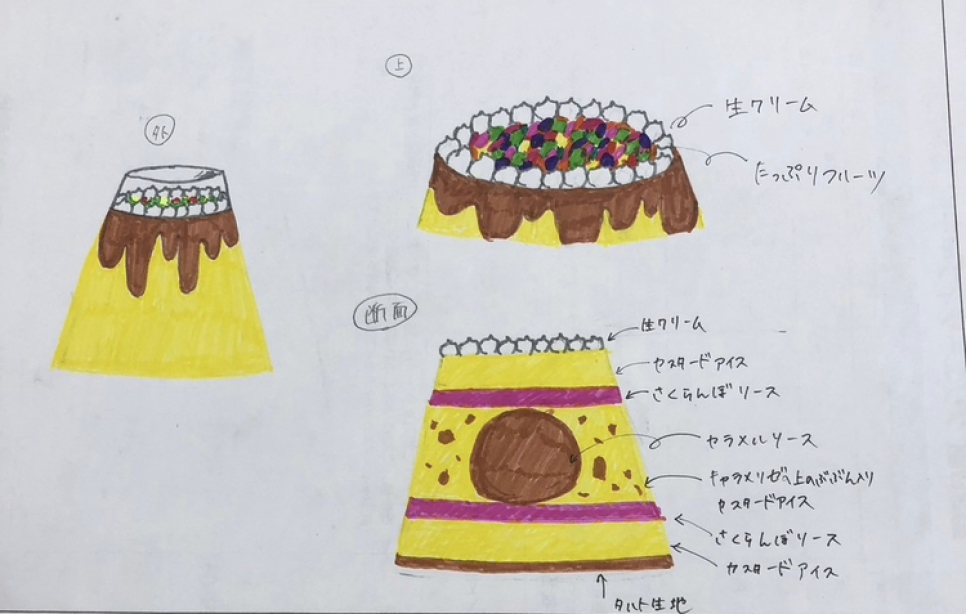 上
外
生クリーム
たっぷりフルーツ
断面
生クリーム
カスタードアイス
さくらんぼソース
カラメルソース
キャラメリゼ上のぶぶん入り
カスタードアイス
さくらんぼソース
カスタードアイス
タルト生地